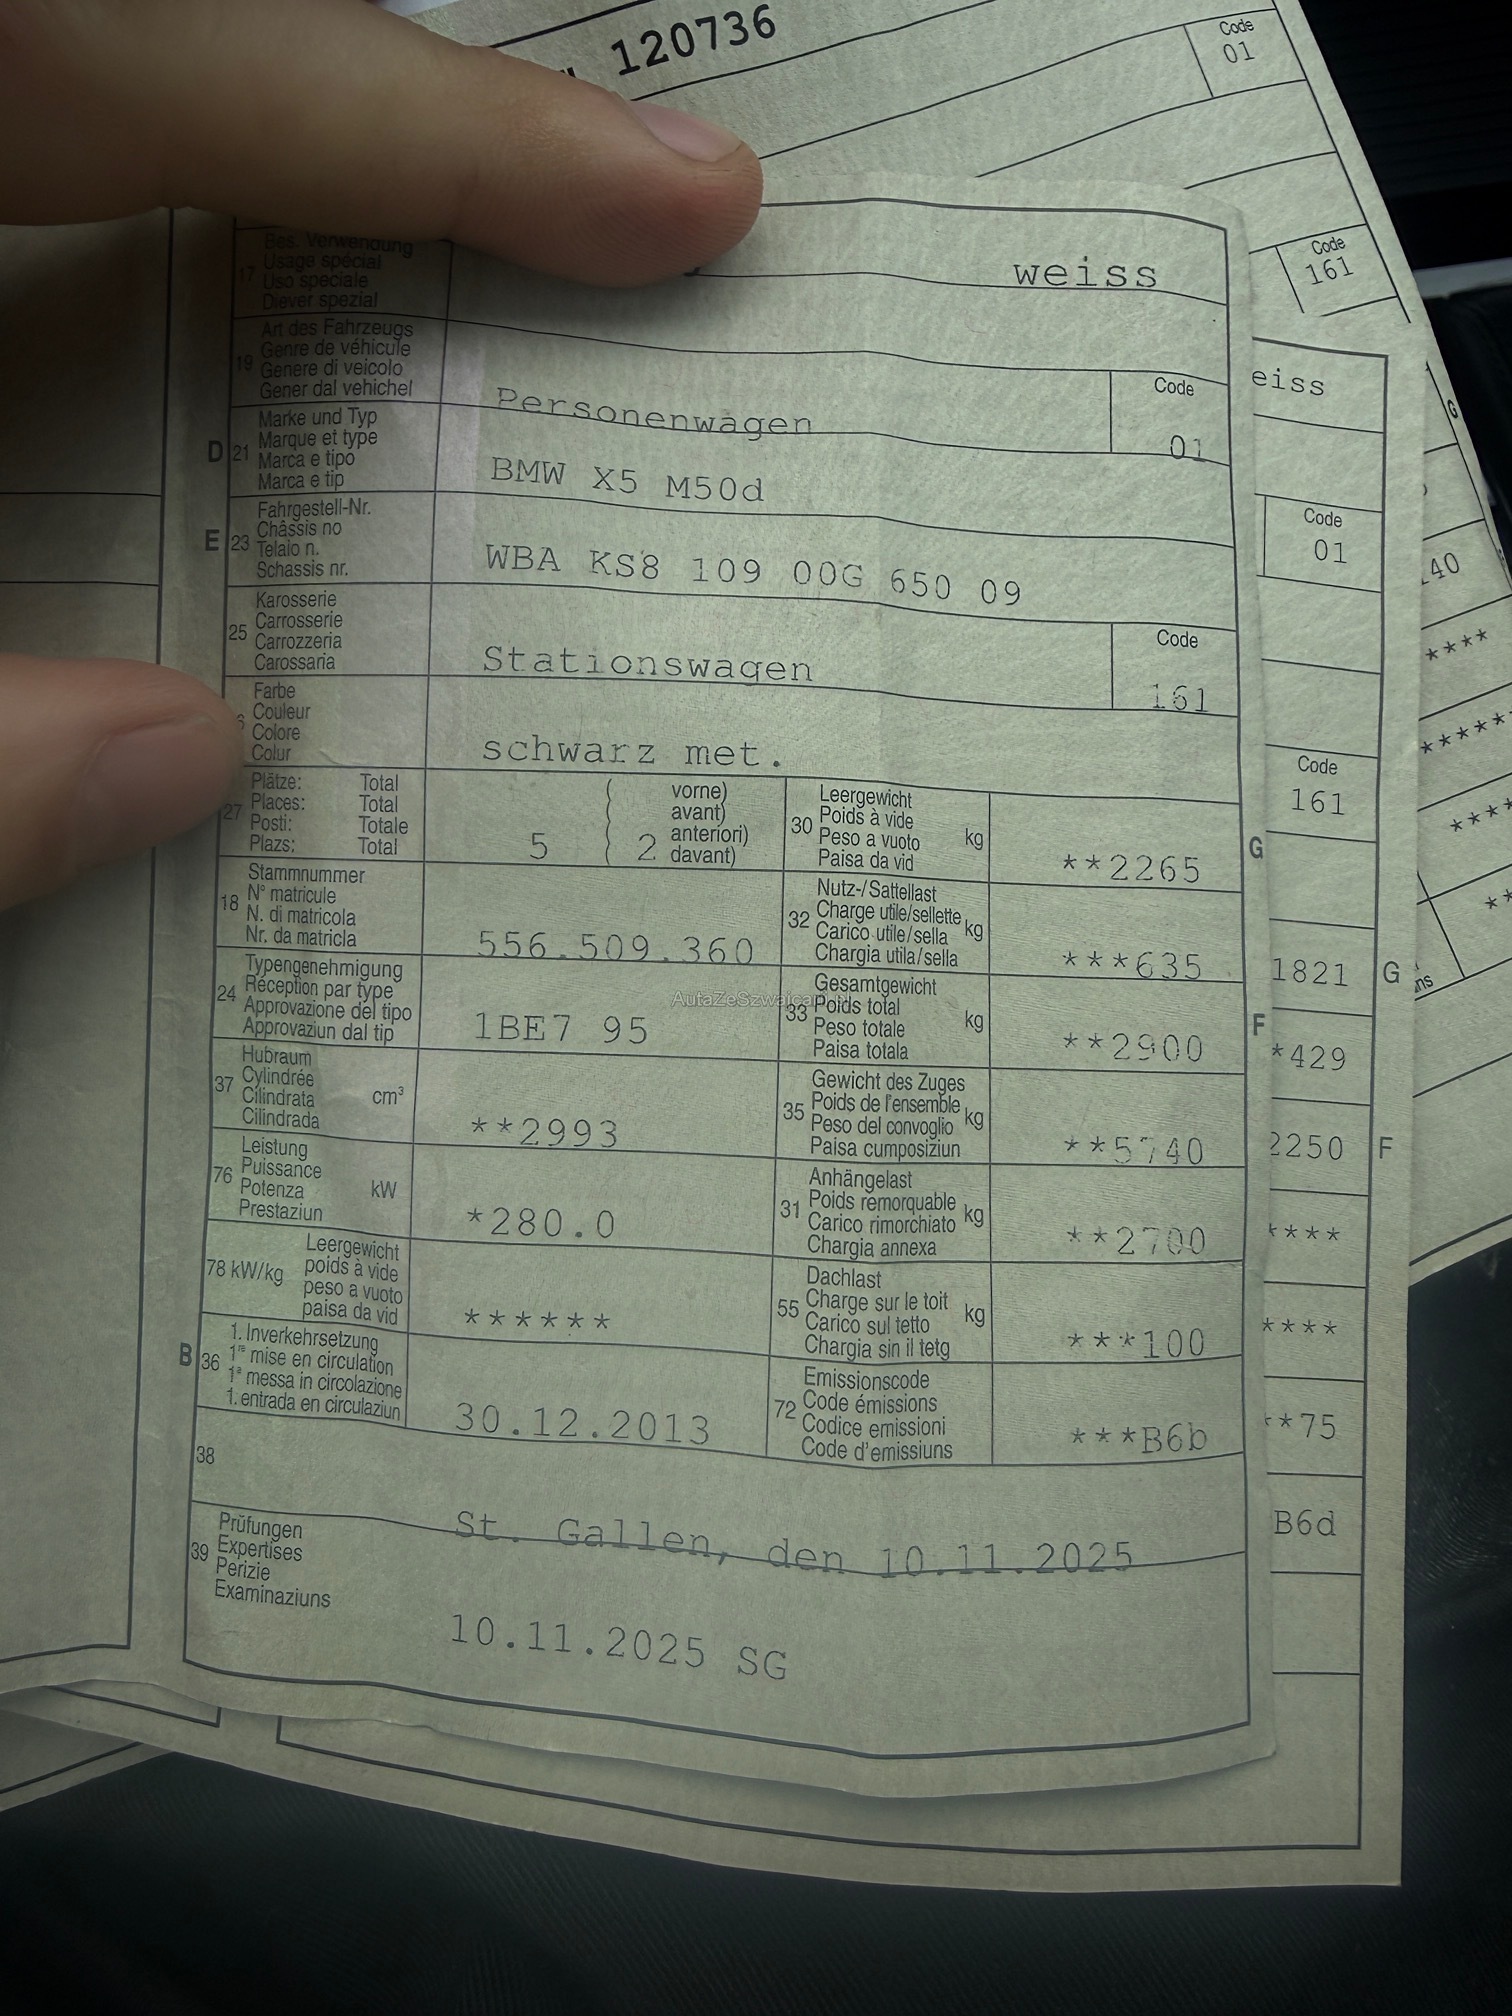 120736
Code
01
Code
161
weiss
17 Bes. Verwendung
Usage spécial
Uso speciale
Diever spezial
19 Art des Fahrzeugs
Genre de véhicule
Genere di veicolo
Gener dal vehichel
Personenwagen
Code
01
D 21 Marke und Typ
Marque et type
Marca e tipo
Marca e tip
BMW X5 M50d
E 23 Fahrgestell-Nr.
Châssis no
Telaio n.
Schassis nr.
WBA KS8 109 00G 650 09
25 Karosserie
Carrosserie
Carrozzeria
Carossaria
Stationswagen
Code
161
Farbe
Couleur
Colore
Colur
schwarz met.
27 Plätze: Total
Places: Total
Posti: Totale
Plazs: Total
5 ( 2
vorne)
avant)
anteriori)
davant)
30 Leergewicht
Poids à vide
Peso a vuoto
Paisa da vid
kg
**2265
G
18 Stammnummer
N° matricule
N. di matricola
Nr. da matricla
556.509.360
32 Nutz-/Sattellast
Charge utile/sellette
Carico utile/sella
Chargia utila/sella
kg
***635
24 Typengenehmigung
Réception par type
Approvazione del tipo
Approvaziun dal tip
1BE7 95
33 Gesamtgewicht
Poids total
Peso totale
Paisa totala
kg
**2900
F
37 Hubraum
Cylindrée
Cilindrata
Cilindrada
cm³
**2993
35 Gewicht des Zuges
Poids de l'ensemble
Peso del convoglio
Paisa cumposiziun
kg
**5740
76 Leistung
Puissance
Potenza
Prestaziun
kW
*280.0
31 Anhängelast
Poids remorquable
Carico rimorchiato
Chargia annexa
kg
**2700
78 kW/kg Leergewicht
poids à vide
peso a vuoto
paisa da vid
******
55 Dachlast
Charge sur le toit
Carico sul tetto
Chargia sin il tetg
kg
***100
B 36 1. Inverkehrsetzung
1re mise en circulation
1a messa in circolazione
1. entrada en circulaziun
30.12.2013
72 Emissionscode
Code émissions
Codice emissioni
Code d'emissiuns
***B6b
38
St. Gallen, den 10.11.2025
39 Prüfungen
Expertises
Perizie
Examinaziuns
10.11.2025 SG
eiss
Code
01
Code
161
1821 G
*429
2250 F
****
****
**75
B6d
G
40
****
******
****
**